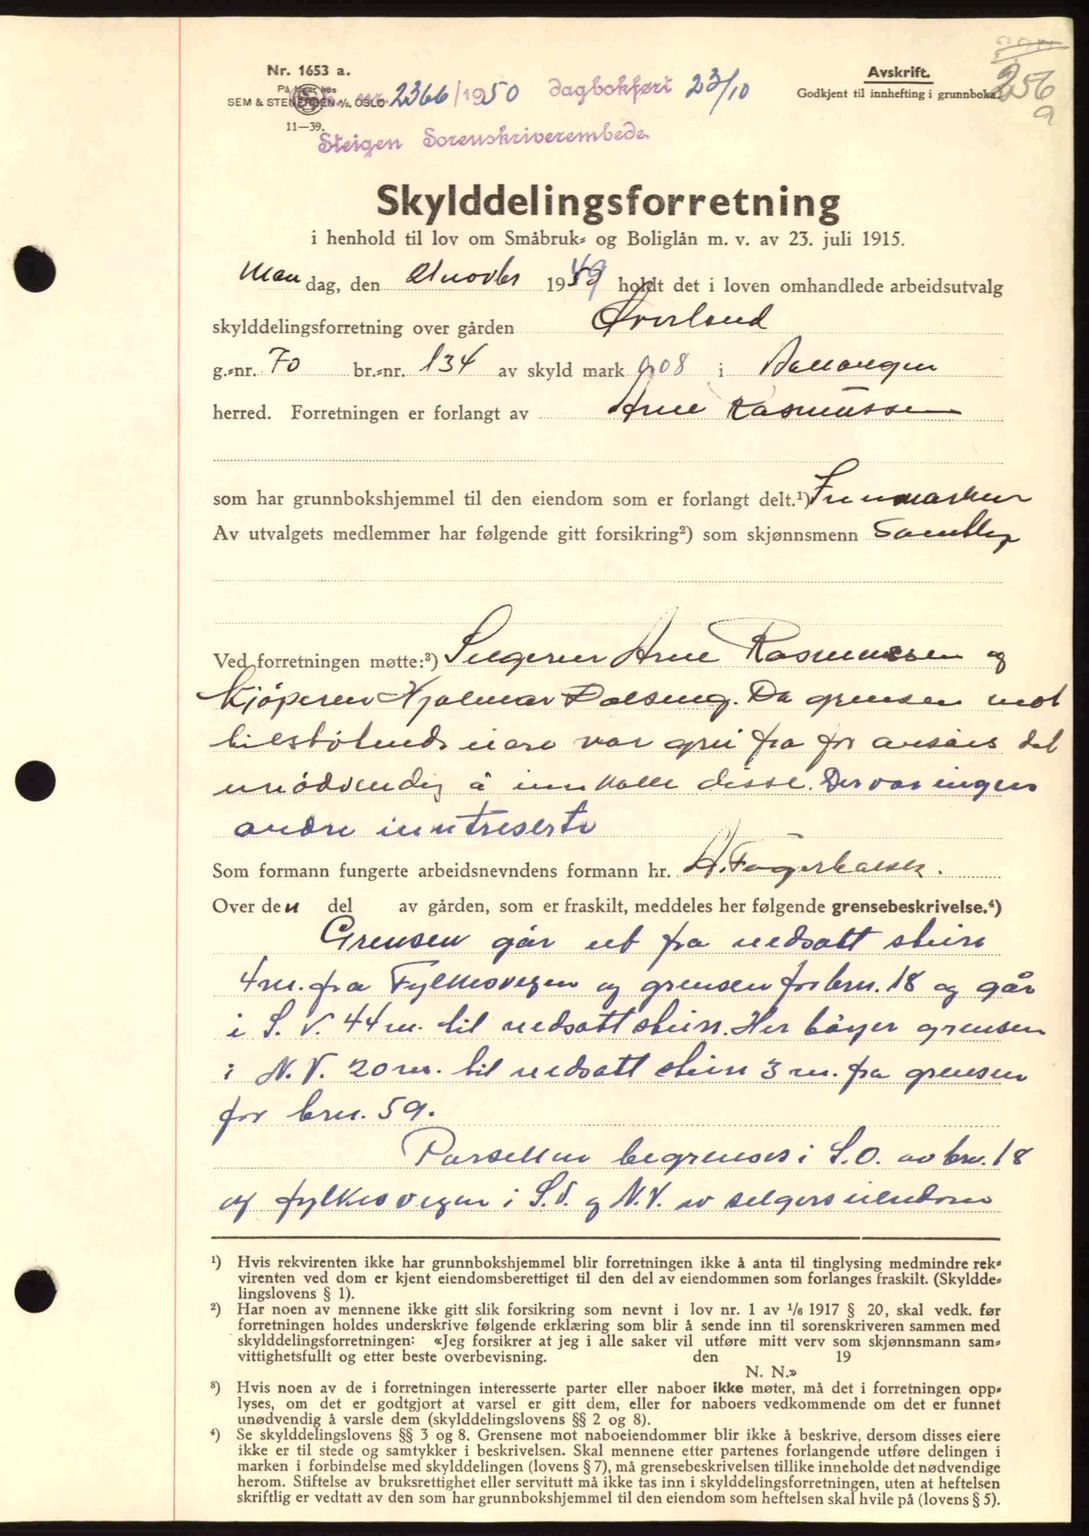 Nr. 1653 a.
På lager hos
SEM & STENERSEN A/S, OSLO
11—39.
nr. 2366/1950 dagbokført 23/10
Steigen Sorenskriverembede.
Avskrift.
Godkjent til innhefting i grunnboka.
256
a
Skylddelingsforretning
i henhold til lov om Småbruk- og Boliglån m. v. av 23. juli 1915.
Mandag, den 21 novbr 1949 holdt det i loven omhandlede arbeidsutvalg
skylddelingsforretning over gården Øverland
g.-nr. 70 br.-nr. 134 av skyld mark 0,08 i
herred. Forretningen er forlangt av Arne Rasmussen
som har grunnbokshjemmel til den eiendom som er forlangt delt.¹)
Av utvalgets medlemmer har følgende gitt forsikring²) som skjønnsmenn Samtlige
Ved forretningen møtte:³) Selgeren Arne Rasmussen og
Kjøperen Hjalmar Dalseng. Da grensen mot
tilstøtende eiere var grei fra før ansåes det
unødvendig å innkalle disse. Der var ingen
andre inntreserte
Som formann fungerte arbeidsnevndens formann hr. A. Fagerbakk.
Over den del av gården, som er fraskilt, meddeles her følgende grensebeskrivelse.⁴)
Grensen går ut fra nedsatt stein
4 m. fra Fylkesvegen og grensen for brn. 18 og går
i S. V. 44 m. til nedsatt stein. Her bøyer grensen
i N. V. 20 m. til nedsatt stein 3 m. fra grensen
for brn. 59.
Parsellen begrenses i S. O. av brn. 18
og fylkesvegen i S. V. og N. V. av selgers eiendom
¹) Hvis rekvirenten ikke har grunnbokshjemmel blir forretningen ikke å anta til tinglysing medmindre rek-
virenten ved dom er kjent eiendomsberettiget til den del av eiendommen som forlanges fraskilt. (Skyldde-
lingslovens § 1).
²) Har noen av mennene ikke gitt slik forsikring som nevnt i lov nr. 1 av 1/6 1917 § 20, skal vedk. før
forretningen holdes underskrive følgende erklæring som blir å sende inn til sorenskriveren sammen med
skylddelingsforretningen: «Jeg forsikrer at jeg i alle saker vil utføre mitt verv som skjønnsmann sam-
vittighetsfullt og etter beste overbevisning. den 19
N. N.»
³) Hvis noen av de i forretningen interesserte parter eller naboer ikke møter, må det i forretningen opp-
lyses, om det er godtgjort at varsel er gitt dem, eller for naboers vedkommende om det er funnet
unødvendig å varsle dem (skylddelingslovens §§ 2 og 8).
⁴) Se skylddelingslovens §§ 3 og 8. Grensene mot naboeiendommer blir ikke å beskrive, dersom disses eiere
ikke er til stede og samtykker i beskrivelsen. Skal mennene etter partenes forlangende utføre delingen i
marken i forbindelse med skylddelingen (lovens § 7), må grensebeskrivelsen tillike inneholde det nødvendige
herom. Stiftelse av bruksrettighet eller servitutt må ikke tas inn i skylddelingsforretningen, uten at heftelsen
skriftlig er vedtatt av den som har grunnbokshjemmel til den eiendom som heftelsen skal hvile på (lovens § 5).